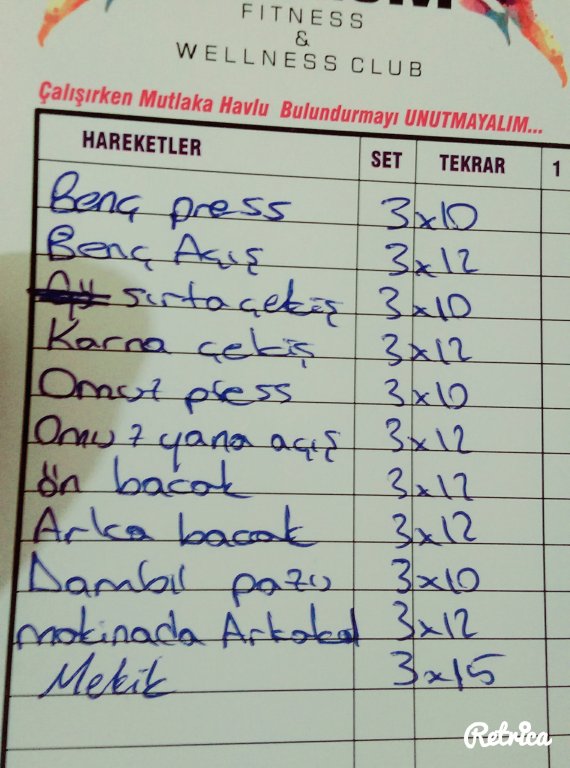 FITNESS
&
WELLNESS CLUB
Çalışırken Mutlaka Havlu Bulundurmayı UNUTMAYALIM...
HAREKETLER SET TEKRAR 1
Benç press 3x10
Benç Açış 3x12
sırta çekiş 3x10
Karna çekiş 3x12
Omuz press 3x10
Omuz yana açış 3x12
ön bacak 3x12
Arka bacak 3x12
Dambıl pazu 3x10
makinada Arkakol 3x12
Mekik 3x15
Retrica